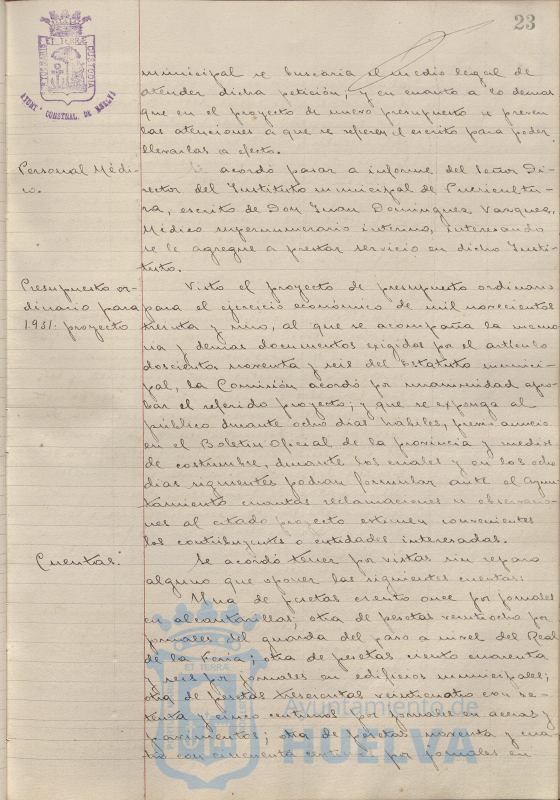 23
PORTUS MARIS ET TERRÆ CUSTODIA
AYUNT. CONSTNAL. DE HUELVA
municipal se buscaria el medio legal de
atender dicha petición, y en cuanto a lo demas
que en el proyecto de nuevo presupuesto se preven
las atenciones a que se refieren el escrito para poder
llevarlas a efecto.
Personal Médi-
co.
Se acordó pasar a informe del Señor Di-
rector del Instituto municipal de Puericultu-
ra, escrito de Don Juan Dominguez Vazquez,
Médico supernumerario interino, interesando
se le agregue a prestar servicio en dicho Insti-
tuto.
Presupuesto or-
dinario para
1.931. proyecto
Visto el proyecto de presupuesto ordinario
para el ejercicio económico de mil novecientos
treinta y uno, al que se acompaña la memo-
ria y demas documentos exigidos por el artículo
doscientos noventa y seis del Estatuto munici-
pal, la Comisión acordó por unanimidad apro-
bar el referido proyecto; y que se exponga al
público durante ocho dias habiles, previo anuncio
en el Boletin Oficial de la provincia y medios
de costumbre, durante los cuales y en los ocho
dias siguientes podran formular ante el Ayun-
tamiento cuantas reclamaciones u observacio-
nes al citado proyecto estimen convenientes
los contribuyentes o entidades interesadas.
Cuentas.
Se acordó tener por vistas sin reparo
alguno que oponer las siguientes cuentas:
Una de pesetas ciento once por jornales
en alcantarillas; otra de pesetas veintiocho por
jornales del guarda del paso a nivel del Real
de la Feria; otra de pesetas ciento cuarenta
y seis por jornales en edificios municipales;
otra de pesetas trescientas veinticuatro con se-
tenta y cinco centimos por jornales en aceras y
pavimentos; otra de pesetas noventa y cua-
tro con cincuenta centimos por jornales en
Ayuntamiento de
HUELVA